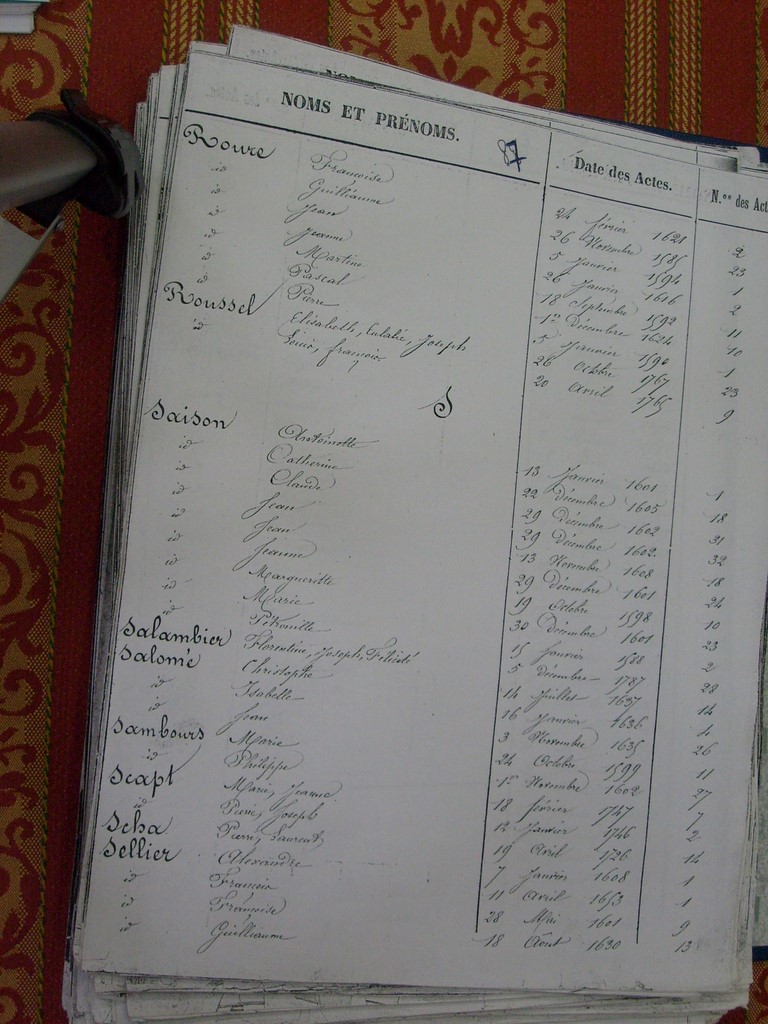 NOMS ET PRÉNOMS. 87 Date des Actes. N.os des Act
Roure Françoise 24 février 1621 2
id Guilliaume 26 Novembre 1585 23
id Jean 5 Janvier 1594 1
id Jeanne 26 Janvier 1616 2
id Martine 18 Septembre 1592 11
id Pascal 1er Décembre 1624 10
id Pierre 5 Janvier 1590 1
Roussel Elisabeth, Eulalie, Joseph 26 Octobre 1767 23
id Louis, françois 20 Avril 1765 9
S
Saison Antoinette 13 Janvier 1601 1
id Catherine 22 Décembre 1605 18
id Claude 29 Décembre 1602 31
id Jean 29 Décembre 1602 32
id Jean 13 Novembre 1608 18
id Jeanne 29 Décembre 1601 24
id Margueritte 19 Octobre 1598 10
id Marie 30 Décembre 1601 23
id Pétronille 15 Janvier 1588 2
Salambier Florentine, Joseph, Félicité 5 Décembre 1787 28
Salomé Christophe 14 Juillet 1637 14
id Isabelle 16 Janvier 1636 4
id Jean 3 Novembre 1635 26
Sambours Marie 24 Octobre 1599 11
id Philippe 1er Novembre 1602 27
Scapt Marie, Jeanne 18 février 1747 7
id Pierre, Joseph 12 Janvier 1746 2
Scha Pierre, Laurent 19 Avril 1726 14
Sellier Alexandre 7 Janvier 1608 1
id François 11 Avril 1653 1
id Françoise 28 Mai 1601 9
id Guilliaume 18 Août 1630 13